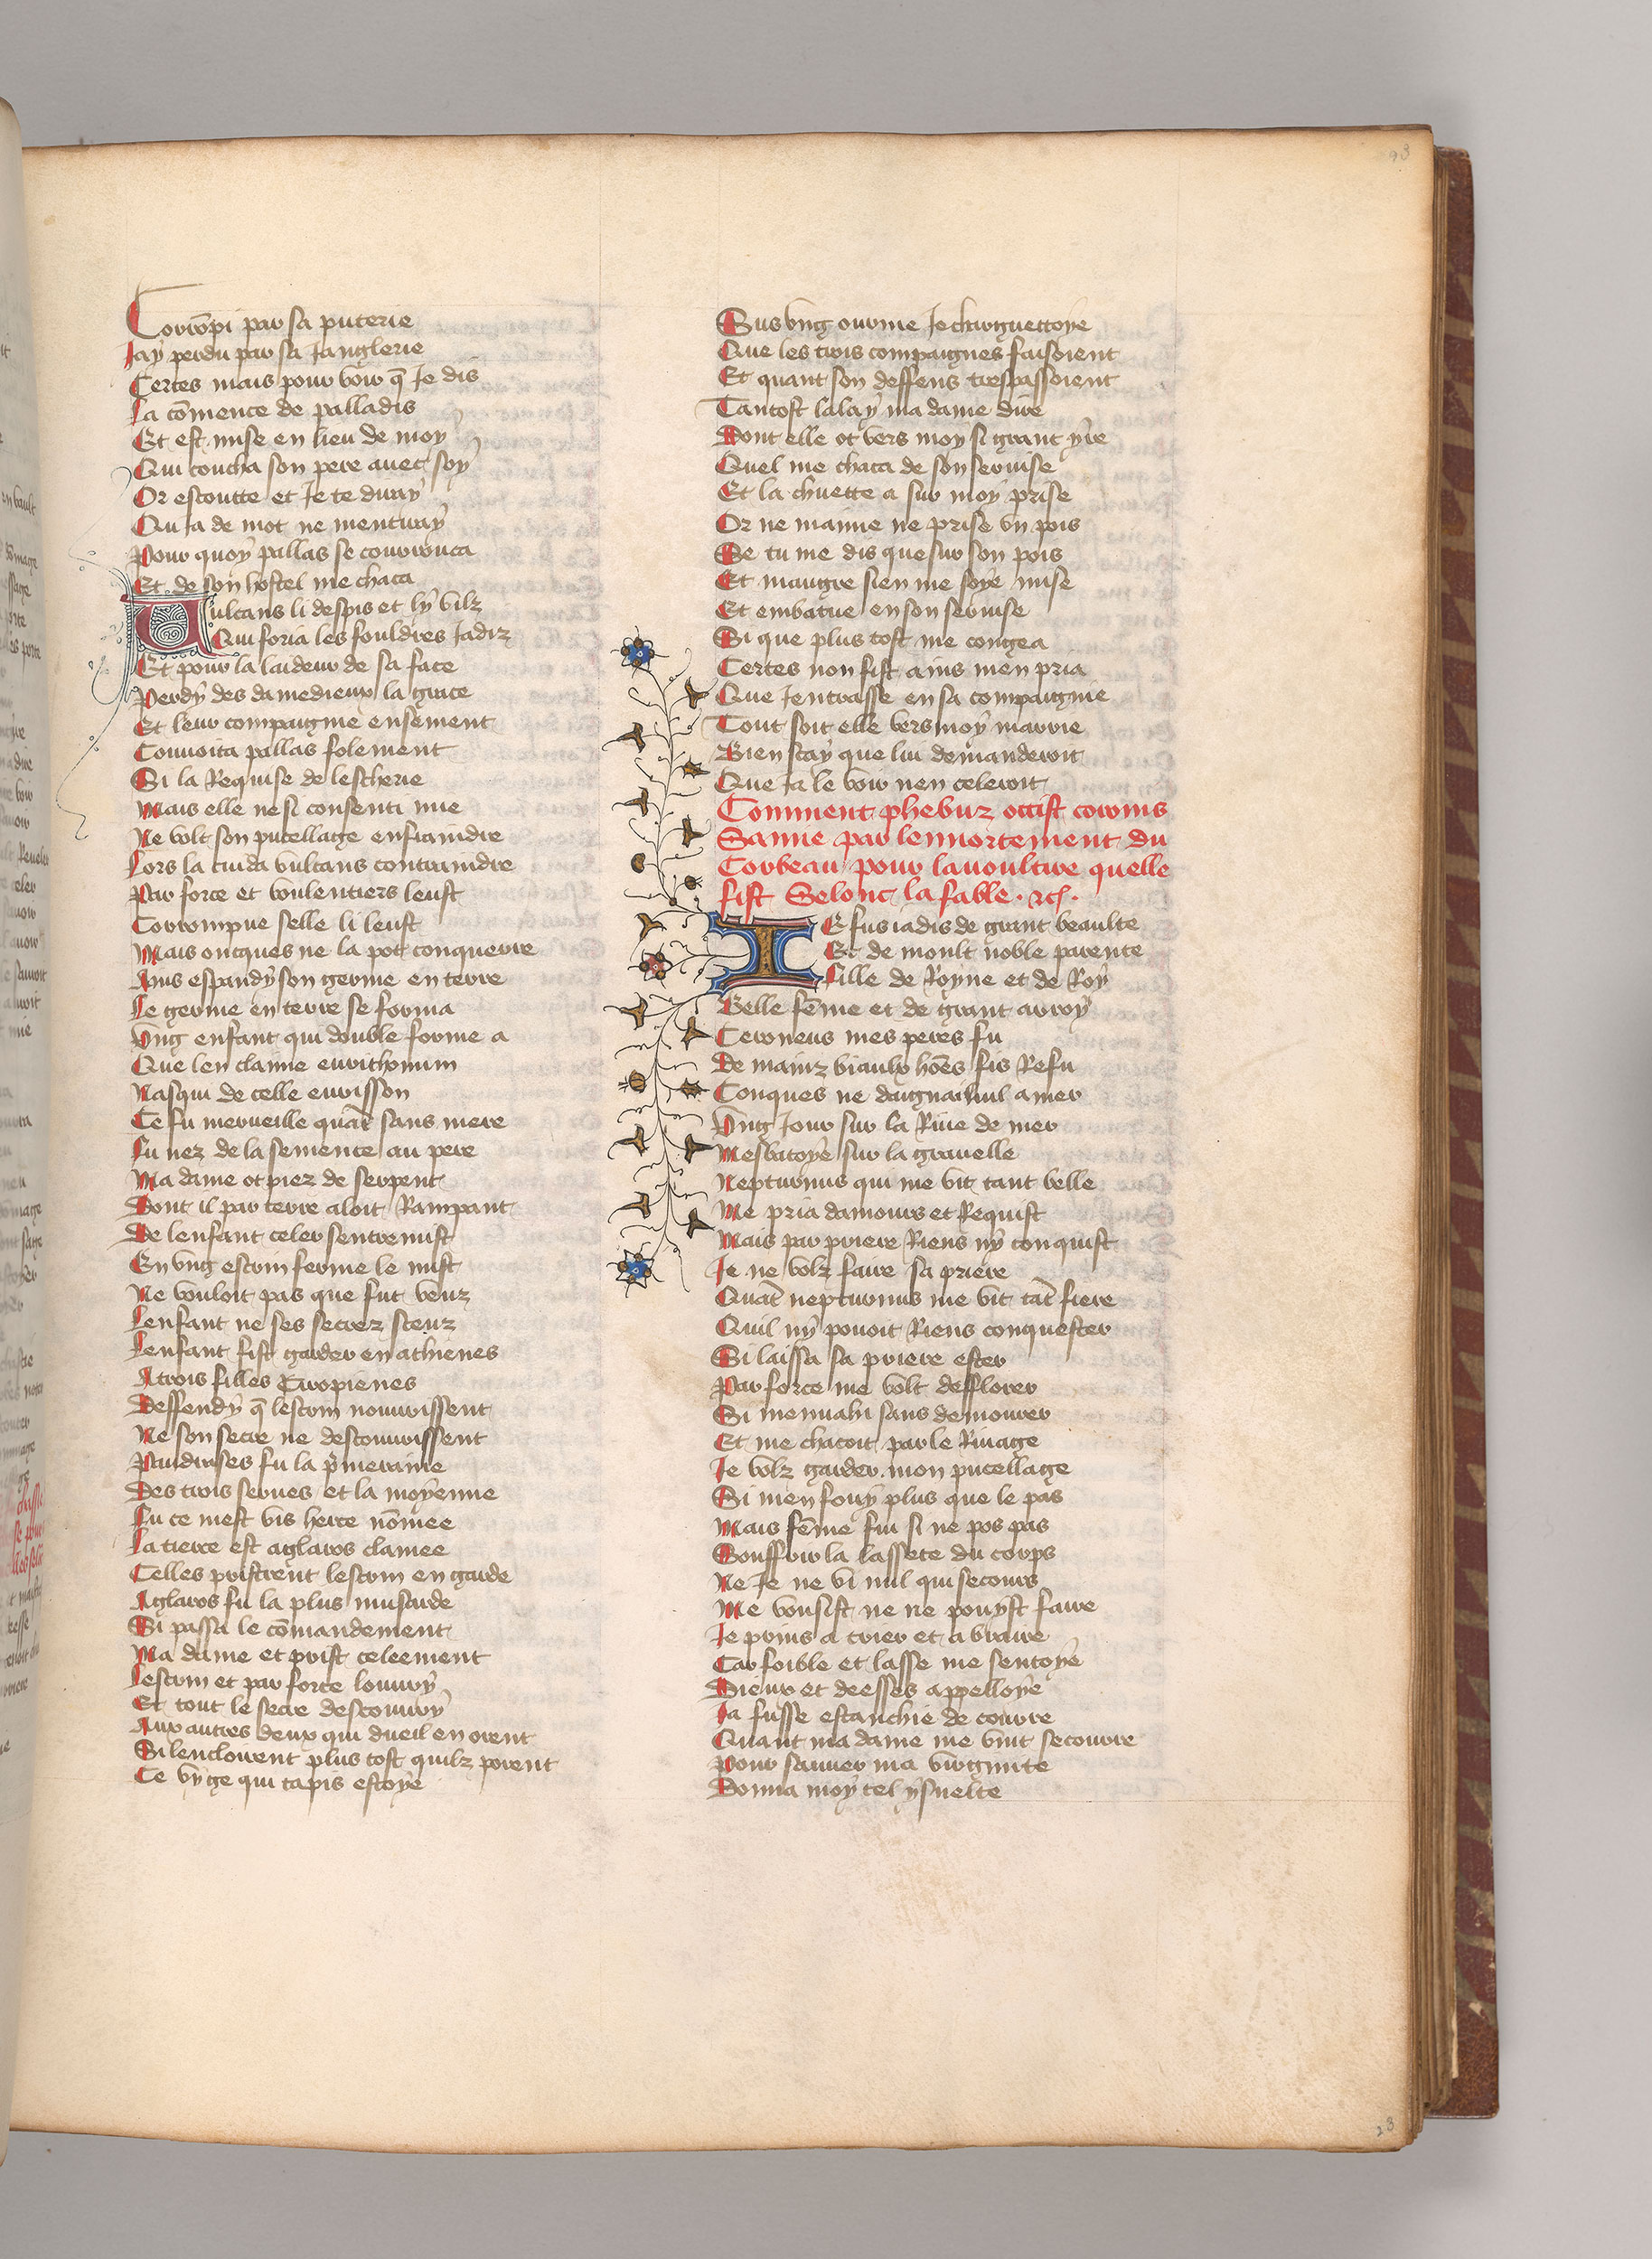 93
Corrōpi par sa puterie
Jay perdu par sa Janglerie
Certes mais pour voir q̄ Je dis
La cōmence de palladis
Et est mise en lieu de moy
Qui coucha son pere auec soy
Or escoutte et Je te diray
Qu Ja de mot ne mentiray
Pour quoy pallas se courrouca
Et de son hostel me chaca
Vulcans li despis et ly vilz
Qui foria les fouldres Jadiz
Et pour la laideur de sa face
Perdy des damedieux la grace
Et leur compaignie ensement
Conuoita pallas folement
Si la Requise de lescherie
Mais elle ne si consenti mie
Ne volt son pucellage enfraindre
Lors la cuida vulcans contraindre
Par force et voulentiers leust
Corrompue selle li leust
Mais oncques ne la pot conquerre
Ains espandy son germe en terre
Le germe en terre se forma
Vng enfant qui double forme a
Que len claime eurithonim
Nasqui de celle eurisson
Ce fu merueille quāt sans mere
Fu nez de la semence au pere
Ma dame ot piez de serpent
Dont il par terre aloit Rampant
De lenfant celer sentremist
En vng escrin ferme le mist
Ne vouloit pas que fut veuz
Lenfant ne ses secrez sceuz
Lenfant fist garder en athienes
A trois filles Ciropienes
Deffendy q̄ lescrin nourrissent
Ne son secre ne descouurissent
Pandrases fu la p̄meraine
Des trois serues et la moyenne
Fu ce mest vis herce nōmee
La tierce est aglaros clamee
Celles pristrent lescrin en garde
Aglaros fu la plus musarde
Si passa le cōmandement
Ma dame et prist celeement
Lescrin et par force louury
Et tout le secre descouury
Aux autres deux qui dueil en orent
Si lenclorent plus tost quilz porent
Ce vy ge qui tapis estoye
Sus vng ourme Je charguettoye
Que les trois compaignes faisoient
Et quant son deffens trespassoient
Tantost lalay ma dame dire
Dont elle ot vers moy si grant yre
Quel me chaca de son seruise
Et la chuette a sur moy prise
Or ne maime ne prise vn pois
Se tu me dis que sur son pois
Et maugre sien me soye mise
Et embatue en son seruise
Si que plus tost me congea
Certes non fist ains men pria
Que Jentrasse en sa compaignie
Tout soit elle vers moy marrie
Bien scay que lui demanderoit
Que Ja le voir nen celeroit
Comment phebuz occist coronis
Samie par lennortement du
Corbeau pour lauoultire quelle
fist Selonc la fable. ⁊c̄.
IE fus iadis de grant beaulte
Et de moult noble parente
Fille de Royne et de Roy
Belle fēme et de grant arroy
Ceroneus mes peres fu
De mainz biaulx hōes fis Refu
Conques ne daignai nul amer
Vng Jour sur la Riue de mer
Mesbatoye sur la grauelle
Nepturnus qui me vit tant belle
Me pria damours et Requist
Mais par priere Riens ny conquist
Je ne volz faire sa priere
Quāt nepturnus me vit tāt fiere
Quil ny pouoit Riens conquester
Si laissa sa priere ester
Par force me volt defflorer
Si menuahi sans demourer
Et me chacoit par le Riuage
Je volz garder mon pucellage
Si men fouy plus que le pas
Mais fēme fui si ne pos pas
Souffrir la lassete du corps
Ne Je ne vi nul qui secours
Me vousist ne ne pouyst faire
Je prins a crier et a braire
Car foible et lasse me sentoye
Dieux et deesses appelloye
Ja fusse estanchie de courre
Quant ma dame me vint secourre
Pour sauuer ma virginite
Donna moy tel ysnelte
23